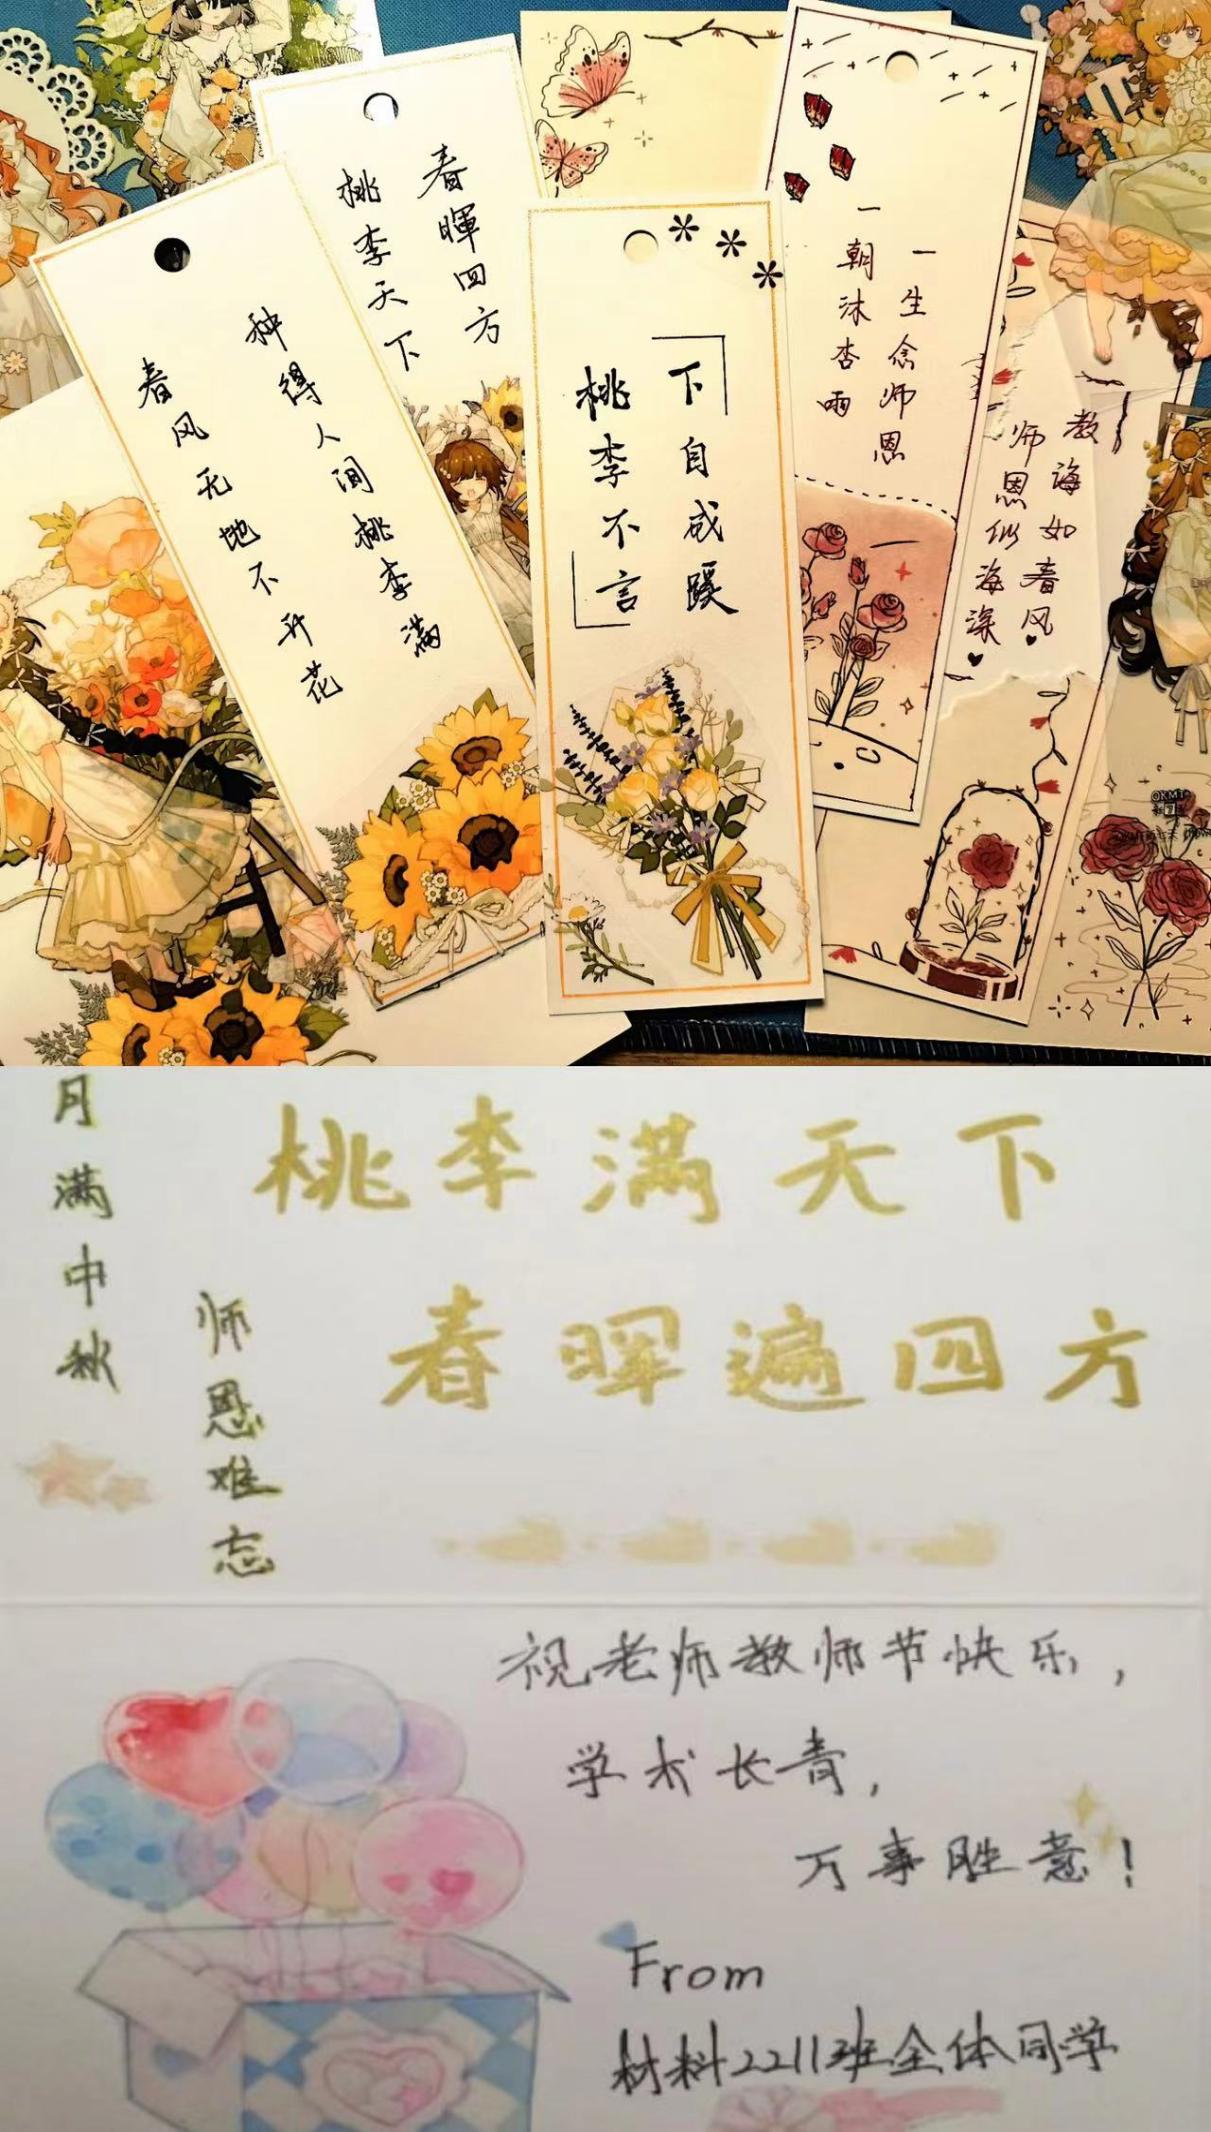 春暉四方
桃李天下
种得人间桃李满
春风无地不开花
桃李不言
下自成蹊
一朝沐杏雨
一生念师恩
教诲如春风
师恩似海深
桃李满天下
春暉遍四方
月满中秋
师恩难忘
祝老师教师节快乐，
学术长青，
万事胜意！
From
材料2211班全体同学